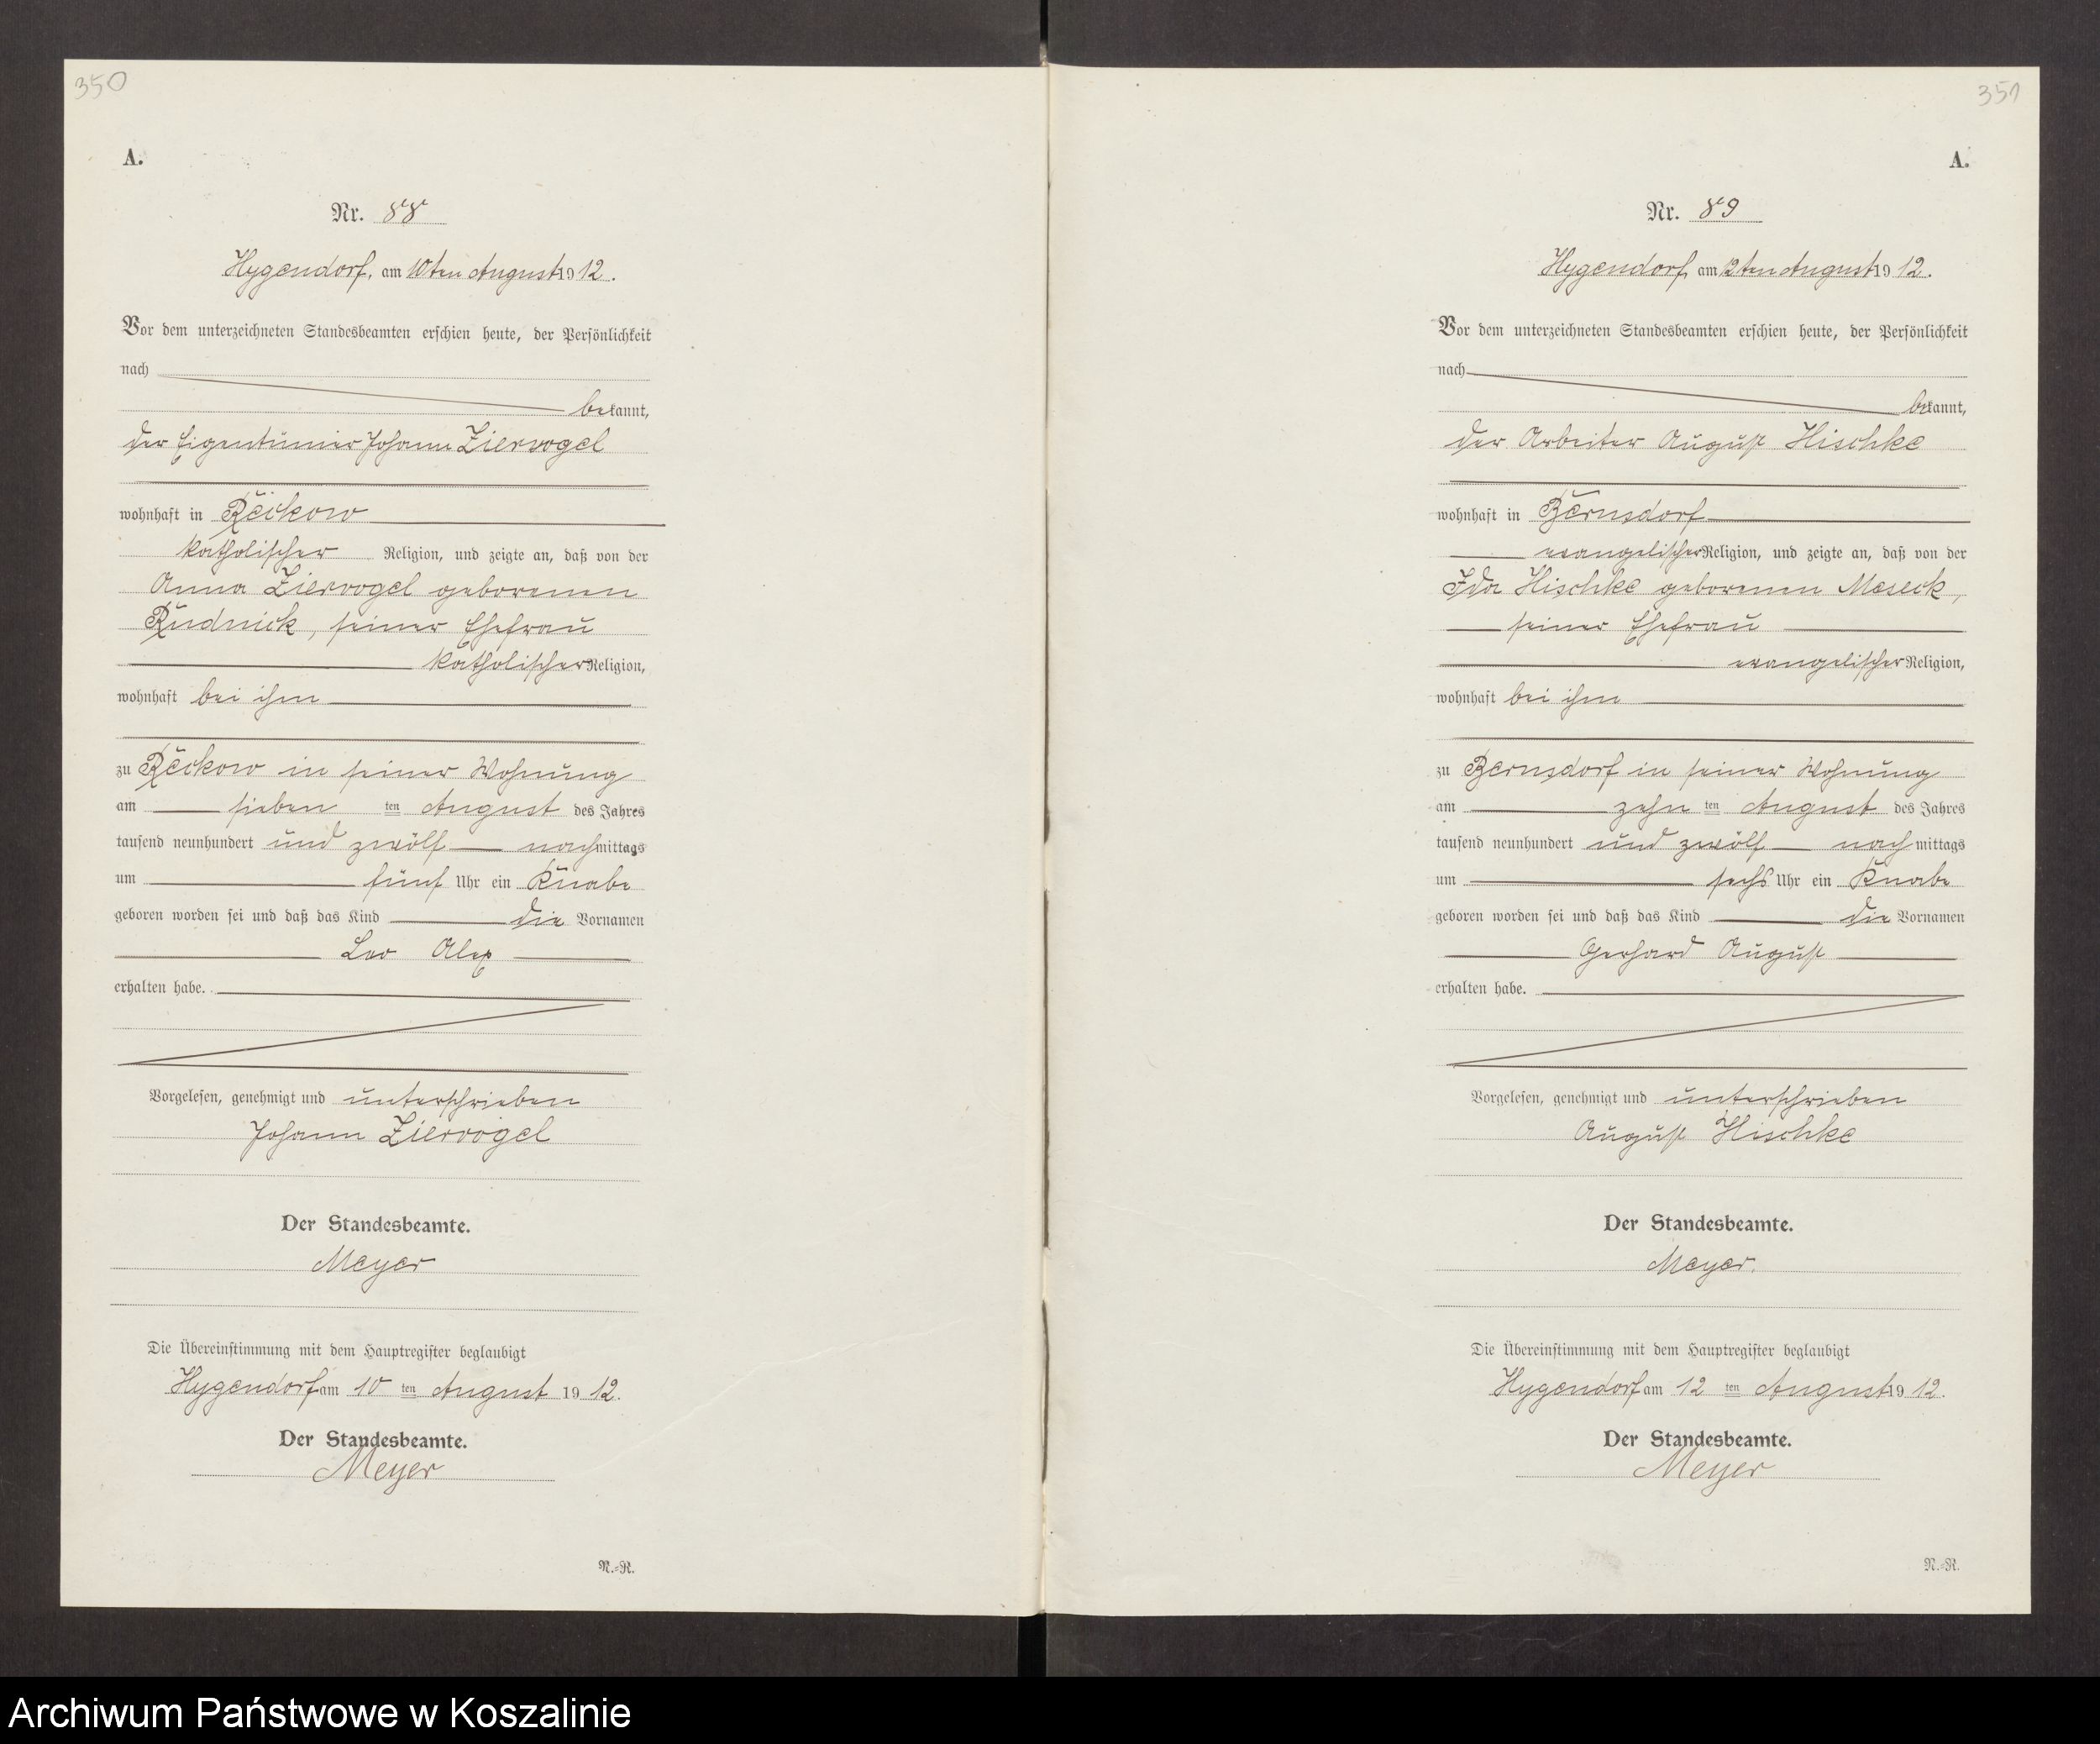 350
A.
Nr. 88
Hygendorf, am 10ten August 1912.
Vor dem unterzeichneten Standesbeamten erschien heute, der Persönlichkeit
nach
bekannt,
der Eigentümer Johann Ziervogel
wohnhaft in Reckow
katholischer Religion, und zeigte an, daß von der
Anna Ziervogel geborenen
Rudnick, seiner Ehefrau
katholischer Religion,
wohnhaft bei ihm
zu Reckow in seiner Wohnung
am sieben ten August des Jahres
tausend neunhundert und zwölf nachmittags
um fünf Uhr ein Knabe
geboren worden sei und daß das Kind die Vornamen
Leo Alex
erhalten habe.
Vorgelesen, genehmigt und unterschrieben
Johann Ziervogel
Der Standesbeamte.
Meyer
Die Übereinstimmung mit dem Hauptregister beglaubigt
Hygendorf am 10 ten August 1912.
Der Standesbeamte.
Meyer
N.-R.
351
A.
Nr. 89
Hygendorf, am 12ten August 1912.
Vor dem unterzeichneten Standesbeamten erschien heute, der Persönlichkeit
nach
bekannt,
der Arbeiter August Hischke
wohnhaft in Bernsdorf
evangelischer Religion, und zeigte an, daß von der
Ida Hischke geborenen Meseck,
seiner Ehefrau
evangelischer Religion,
wohnhaft bei ihm
zu Bernsdorf in seiner Wohnung
am zehn ten August des Jahres
tausend neunhundert und zwölf nachmittags
um sechs Uhr ein Knabe
geboren worden sei und daß das Kind die Vornamen
Gerhard August
erhalten habe.
Vorgelesen, genehmigt und unterschrieben
August Hischke
Der Standesbeamte.
Meyer.
Die Übereinstimmung mit dem Hauptregister beglaubigt
Hygendorf am 12 ten August 1912.
Der Standesbeamte.
Meyer
N.-R.
Archiwum Państwowe w Koszalinie